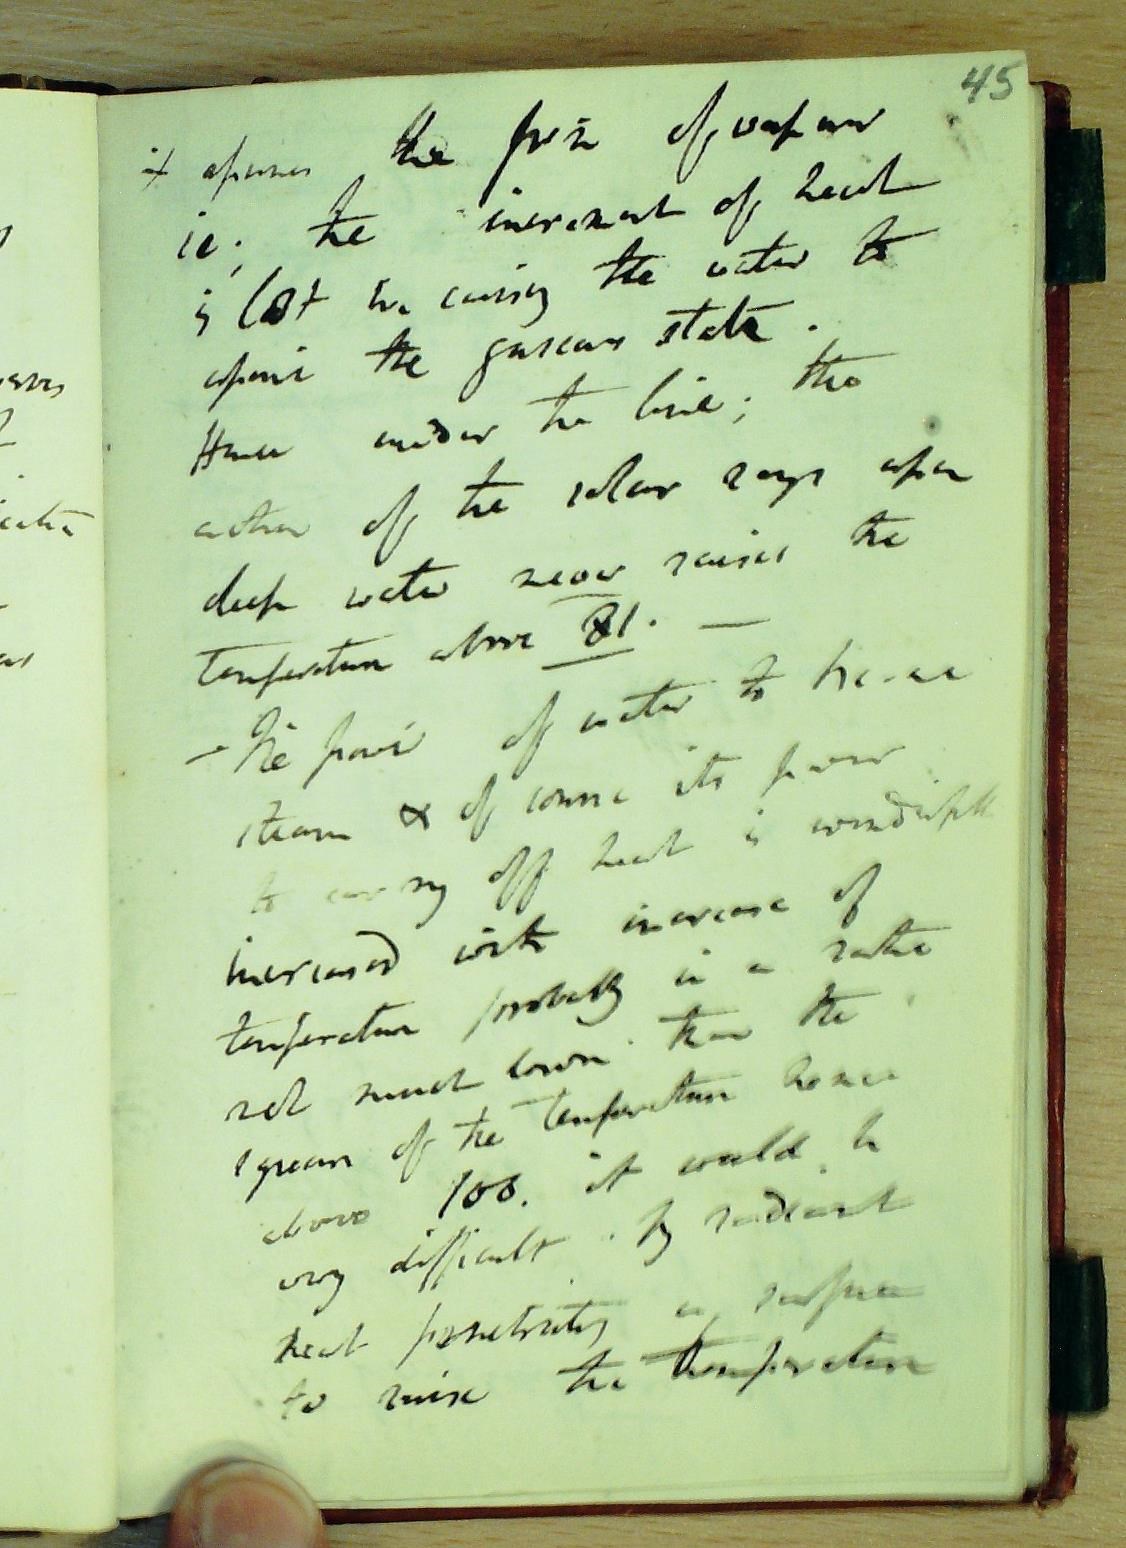 45
it assumes the form of vapour
ie; the increment of heat
is lost in causing the water to
assume the gaseous state.
Hence under the line; the
action of the solar rays upon
deep water never raises the
temperature above 81. —
- The power of water to become
steam & of course its power
to carry off heat is wonderfully
increased with increase of
temperature probably in a ratio
not much lower than the
square of the temperature hence
above 100. it would be
very difficult by radiant
heat penetrating a surface
to raise the temperature